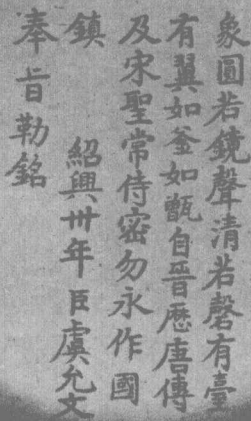 象圓若鏡聲清若磬有臺
有翼如釜如甑自晉歷唐傳
及宋聖常侍密勿永作國
鎮 紹興卅年臣虞允文
奉旨勒銘